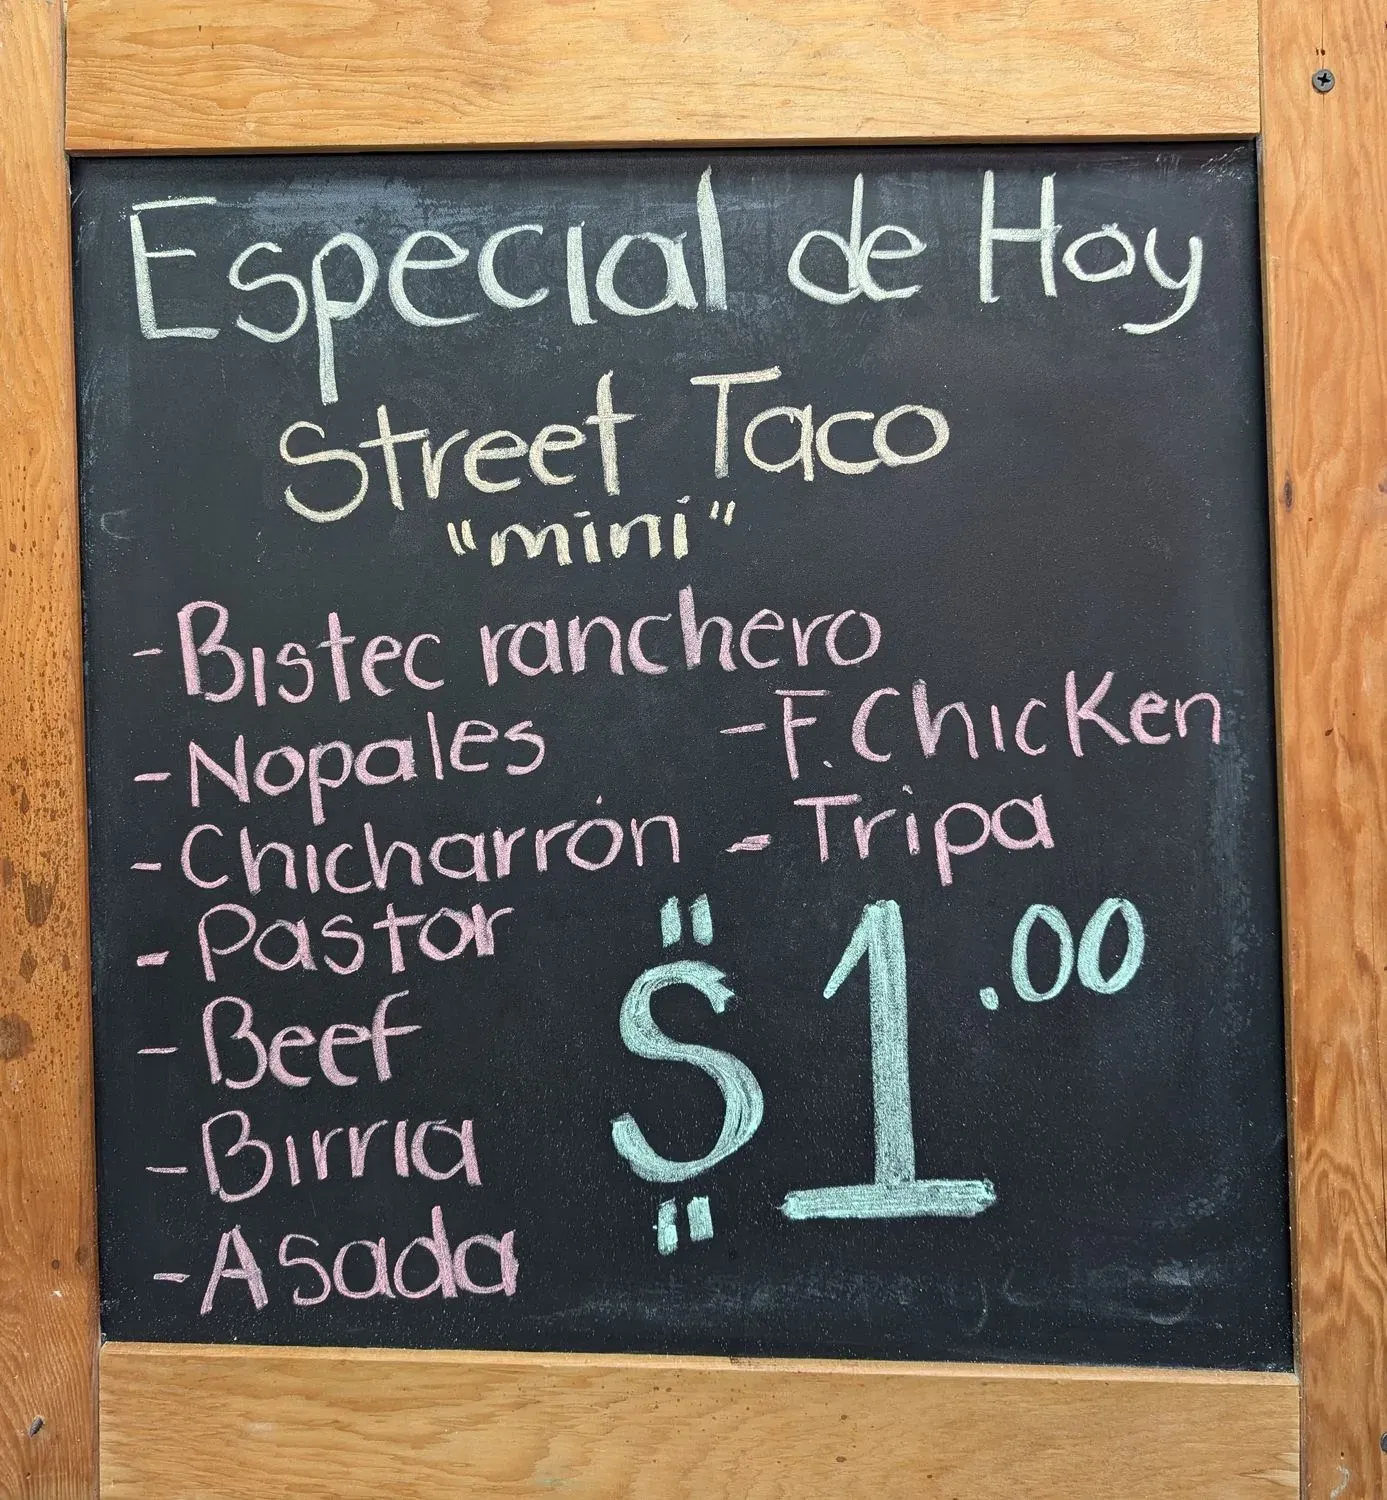 Especial de Hoy
Street Taco
"mini"
- Bistec ranchero
- Nopales
- F. Chicken
- Chicharrón
- Tripa
- Pastor
- Beef
- Birria
- Asada
$1.00